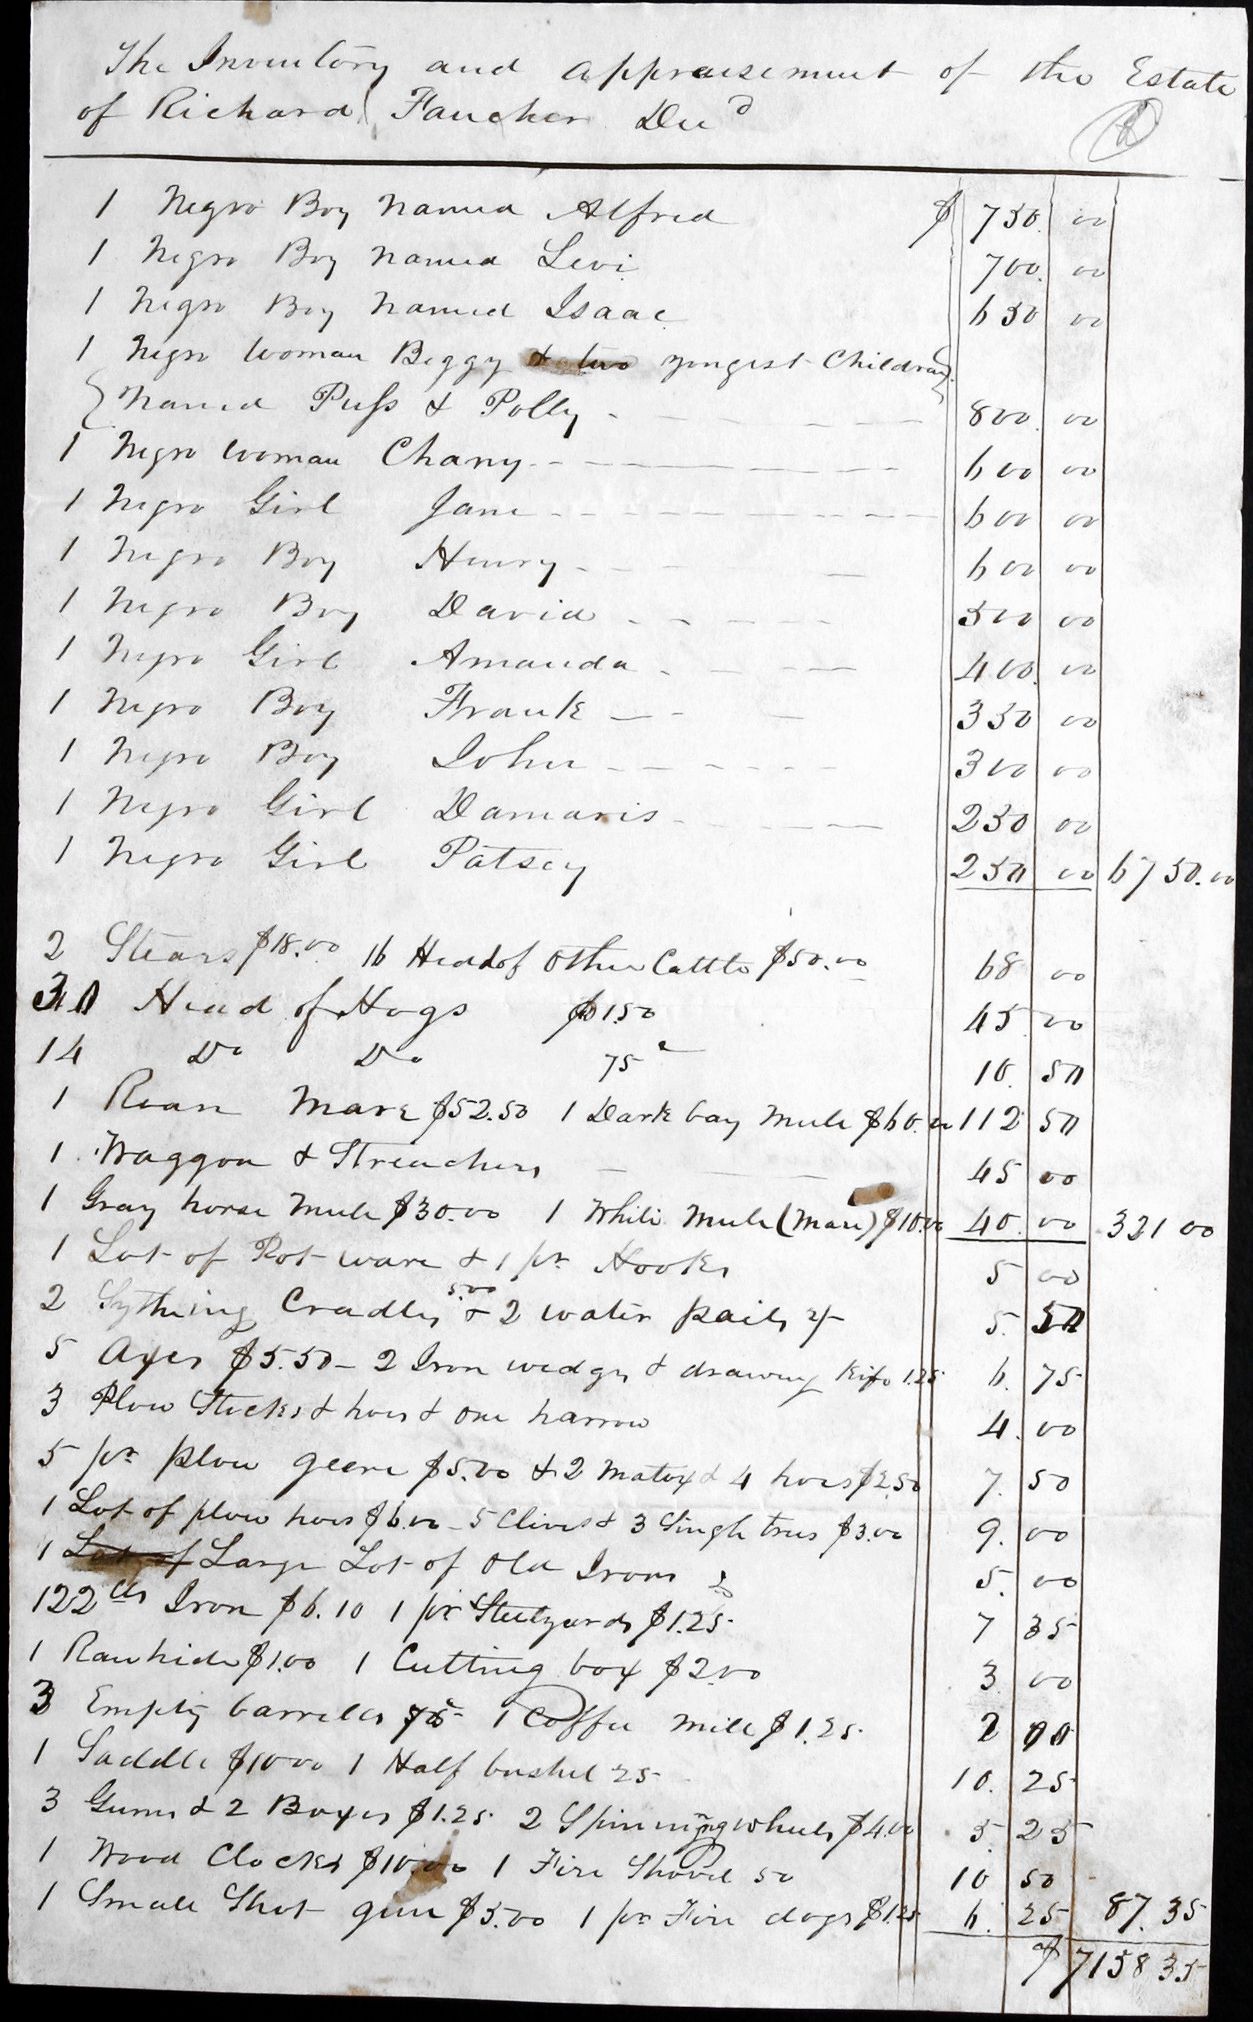 The Inventory and appraisement of the Estate
of Richard Faucher Decd
1 Negro Boy named Alfred $ 750. 00
1 Negro Boy named Levi 700. 00
1 Negro Boy named Isaac 650 00
1 Negro Woman Beggy & two yongest Children
named Puss & Polly - 800. 00
1 Negro Woman Chany 600 00
1 Negro Girl Jane 600 00
1 Negro Boy Henry 600 00
1 Negro Boy David 500 00
1 Negro Girl Amanda 400. 00
1 Negro Boy Frank 350 00
1 Negro Boy John 300 00
1 Negro Girl Damaris 250 00
1 Negro Girl Patsey 250 00 6750.00
2 Stears $18.00 16 Head of other Cattle $50.00 68 00
30 Head of Hogs $1.50 45 00
14 Do Do 75c 10. 50
1 Roan Mare $52.50 1 Dark bay Mule $60.00 112 50
1 Waggon & Streachers 45 00
1 Gray horse Mule $30.00 1 White Mule (Mare) $10.00 40. 00 321 00
1 Lot of Pot ware & 1 pr Hooks 5 00
2 Sything Cradles 5.00 & 2 water pails 5. 50
5 Axes $5.50 - 2 Iron wedges & drawing Kife 1.25 6. 75
3 Plow Stocks & hoes & one harrow 4. 00
5 pr plow geere $5.00 & 2 matox & 4 hoes $2.50 7. 50
1 Lot of plow hoes $6.00 - 5 Clives & 3 Single trees $3.00 9. 00
1 Lot of Large Lot of Old Irons 5. 00
122 lbs Iron $6.10 1 pr Steelyards $1.25 7 35
1 Rawhide $1.00 1 Cutting box $2.00 3. 00
3 Empty barrells 75 1 Coffee Mill $1.25 2 00
1 Saddle $10.00 1 Half bushel 25 10. 25
3 Gums & 2 Boxes $1.25 2 Spinning wheels $4.00 5. 25
1 Wood Clocks $10.00 1 Fire Shovel 50 10 50
1 Small Shot gun $5.00 1 pr Fire dogs $1.25 6. 25 87.35
$ 7158 35